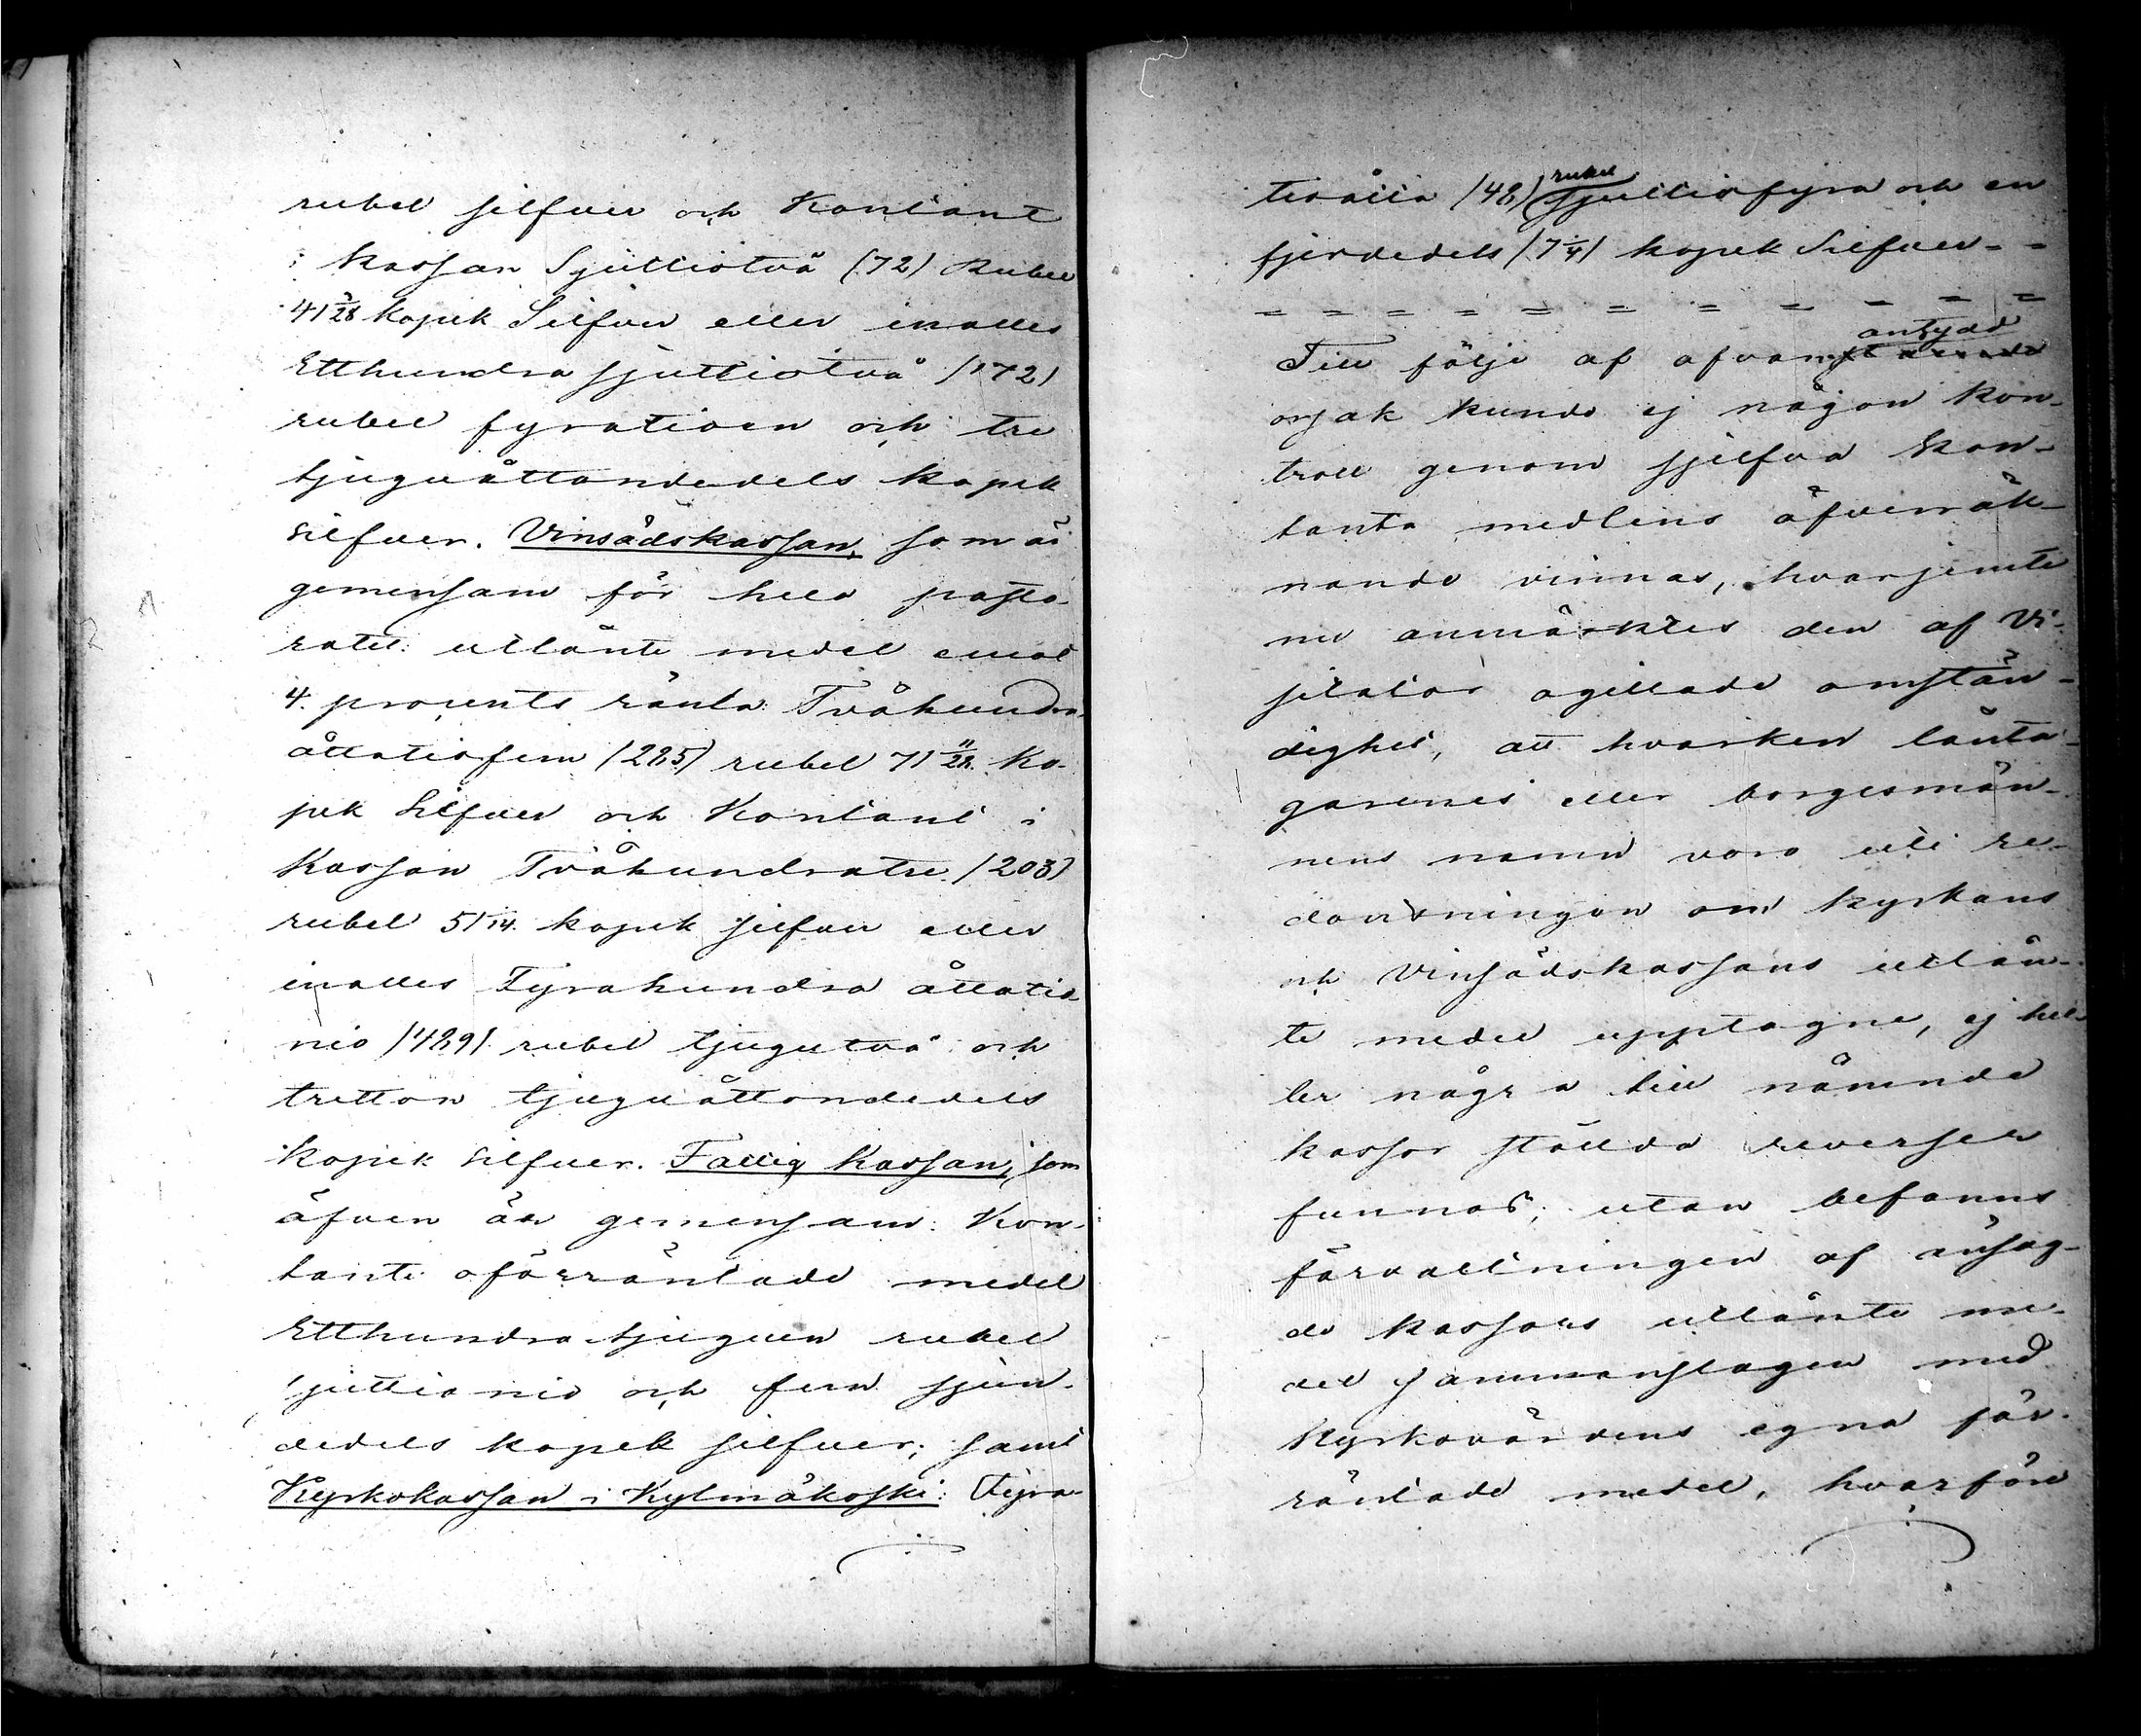 rubel silfver och Kontant
i Kassan Sjuttiotvå (72) Rubel
41 3/28 kopek Silfver eller inalles
Etthundra sjuttiotvå (172)
rubel fyratioen och tre
tjuguåttondedels kopek
silfver. Vinsädskassan, som är
gemensam för hela pasto-
ratet: utlånte medel emot
4. procents ränta: Tvåhundra
åttatiofem (285) rubel 71 11/28. Ko-
pek Silfver och Kontant i
Kassan Tvåhundratre (203)
rubel 51/14. kopek silfver eller
inalles Fyrahundra åttatio
nio (489) rubel tjugutvå och
tretton tjuguåttondedels
kopek silfver. Fattig Kassan, som
äfven är gemensam: Kon-
tante oförräntade medel
Etthundra tjuguen rubel
sjuttionio och fem sjun-
dedels kopek silfver; samt
Kyrkokassan i Kylmäkoski: Fyra-
tioåtta (48) rubel sjuttiofyra och en
fjerdedels (7 1/4) kopek Silfver - -
= = = = = = = = = = =
antydd
Till följe af ofvan
orsak kunde ej någon kon-
troll genom sjelfva kon-
tanta medlens öfverräk-
nande vinnas, hvarjemte
nu anmärktes den af Vi-
sitator ogillade omstän-
dighet, att hvarken lånta-
garenes eller borgesmän-
nens namn voro uti re-
dovisningen om kyrkans
och Vinsädskassans utlån-
te medel upptagne, ej hel-
ler några till nämnda
kassor ställda reverser
funnos; utan befanns
förvaltningen af ansag-
de kassors utlånte me-
del sammanslagen med
Kyrkovärdens egna för-
räntade medel, hvarföre